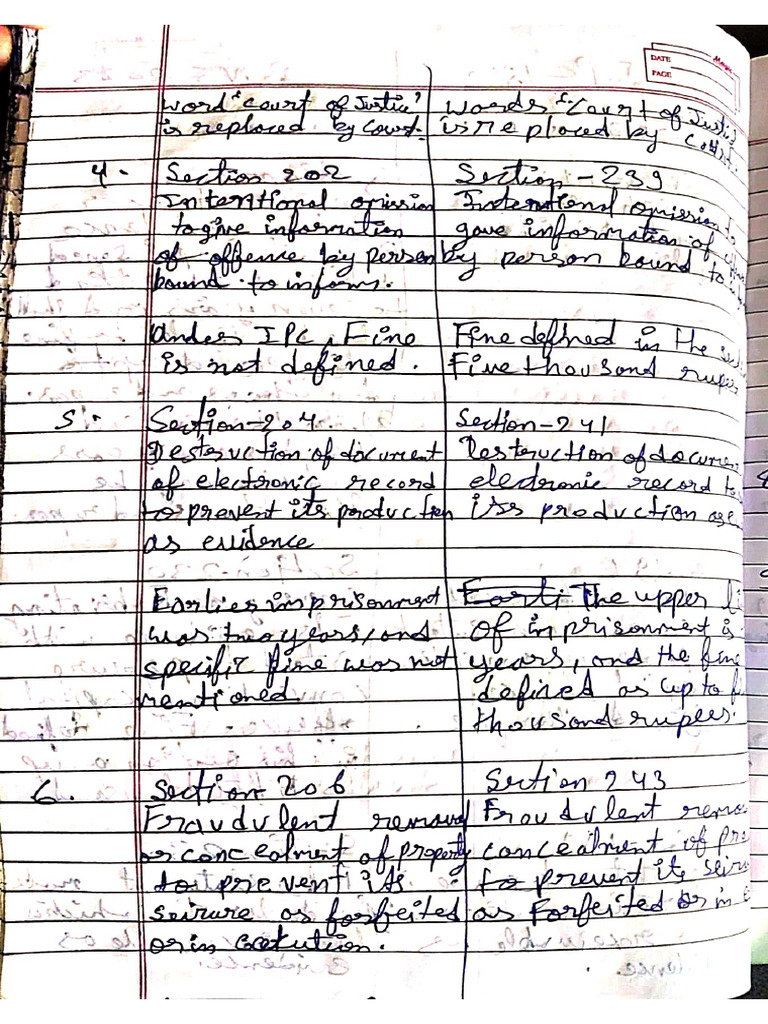 DATE
PAGE
word "Court of Justice"
is replaced by Court.
words "Court of Justic
is replaced by Court.
4.
Section 202
Intentional omission
to give information
of offence by person
bound to inform.
Under IPC, Fine
is not defined.
Section - 239
Intentional omission to
gave information of
by person bound to
Fine defined in the
Five thousand rupe
5.
Section-204
Destruction of document
of electronic record
to prevent its production
as evidence
Earlier imprisonment
was two years, and
specific fine was not
mentioned.
Section-241
Destruction of docume
electronic record to
its production as e
The upper li
of imprisonment is
years, and the fine
defined as up to f
thousand rupees.
6.
Section 206
Fraudulent removal
or concealment of property
to prevent its
seizure as forfeited
or in
Section 243
Fraudulent remo
concealment of pr
to prevent its seizu
as Forfeited or in e